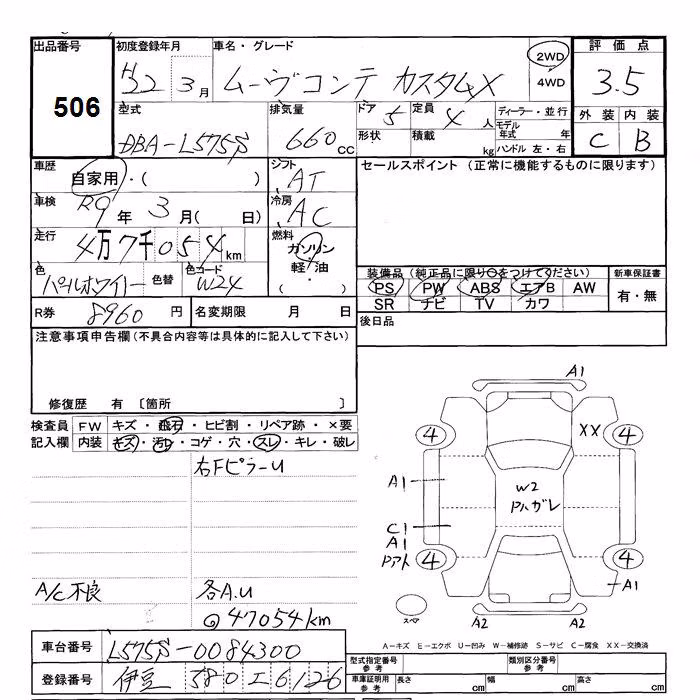 出品番号 初度登録年月 車名・グレード 2WD 評価点
506 H22 3月 ムーヴコンテ カスタムX 4WD 3.5
型式 排気量 ドア 5 定員 4人 ディーラー・並行 外装 内装
DBA-L575S 660cc 形状 積載 kg モデル年式 年 ハンドル 左・右 C B
車歴 自家用・( ) シフト AT セールスポイント (正常に機能するものに限ります)
車検 R9年 3月( 日) 冷房 AC
走行 4万7千054km 燃料 ガソリン
色 パールホワイト 色替 色コード W24 軽・油 ( ・ )
装備品 (純正品に限り○をつけてください) 新車保証書
PS PW ABS エアB AW 有・無
SR ナビ TV カワ
R券 8960円 名変期限 月 日 後日品
注意事項申告欄 (不具合内容等は具体的に記入して下さい)
修復歴 有 〔箇所 〕
検査員 FW キズ・飛石・ヒビ割・リペア跡・×要
記入欄 内装 キズ・汚レ・コゲ・穴・スレ・キレ・破レ
右FピラーU
A/C不良 各A.U
◎47054km
A1
4 XX 4
A1 W2
Pハガレ
C1
A1
Pアト 4 4
A1
スペア A2 A2
A-キズ E-エクボ U-凹み W-補修跡 S-サビ C-腐食 XX-交換済
車台番号 L575S-0084300 型式指定番号 参考 類別区分番号 参考
登録番号 伊豆 580 エ 6126 車庫証明用 参考 長さ cm 幅 cm 高さ cm